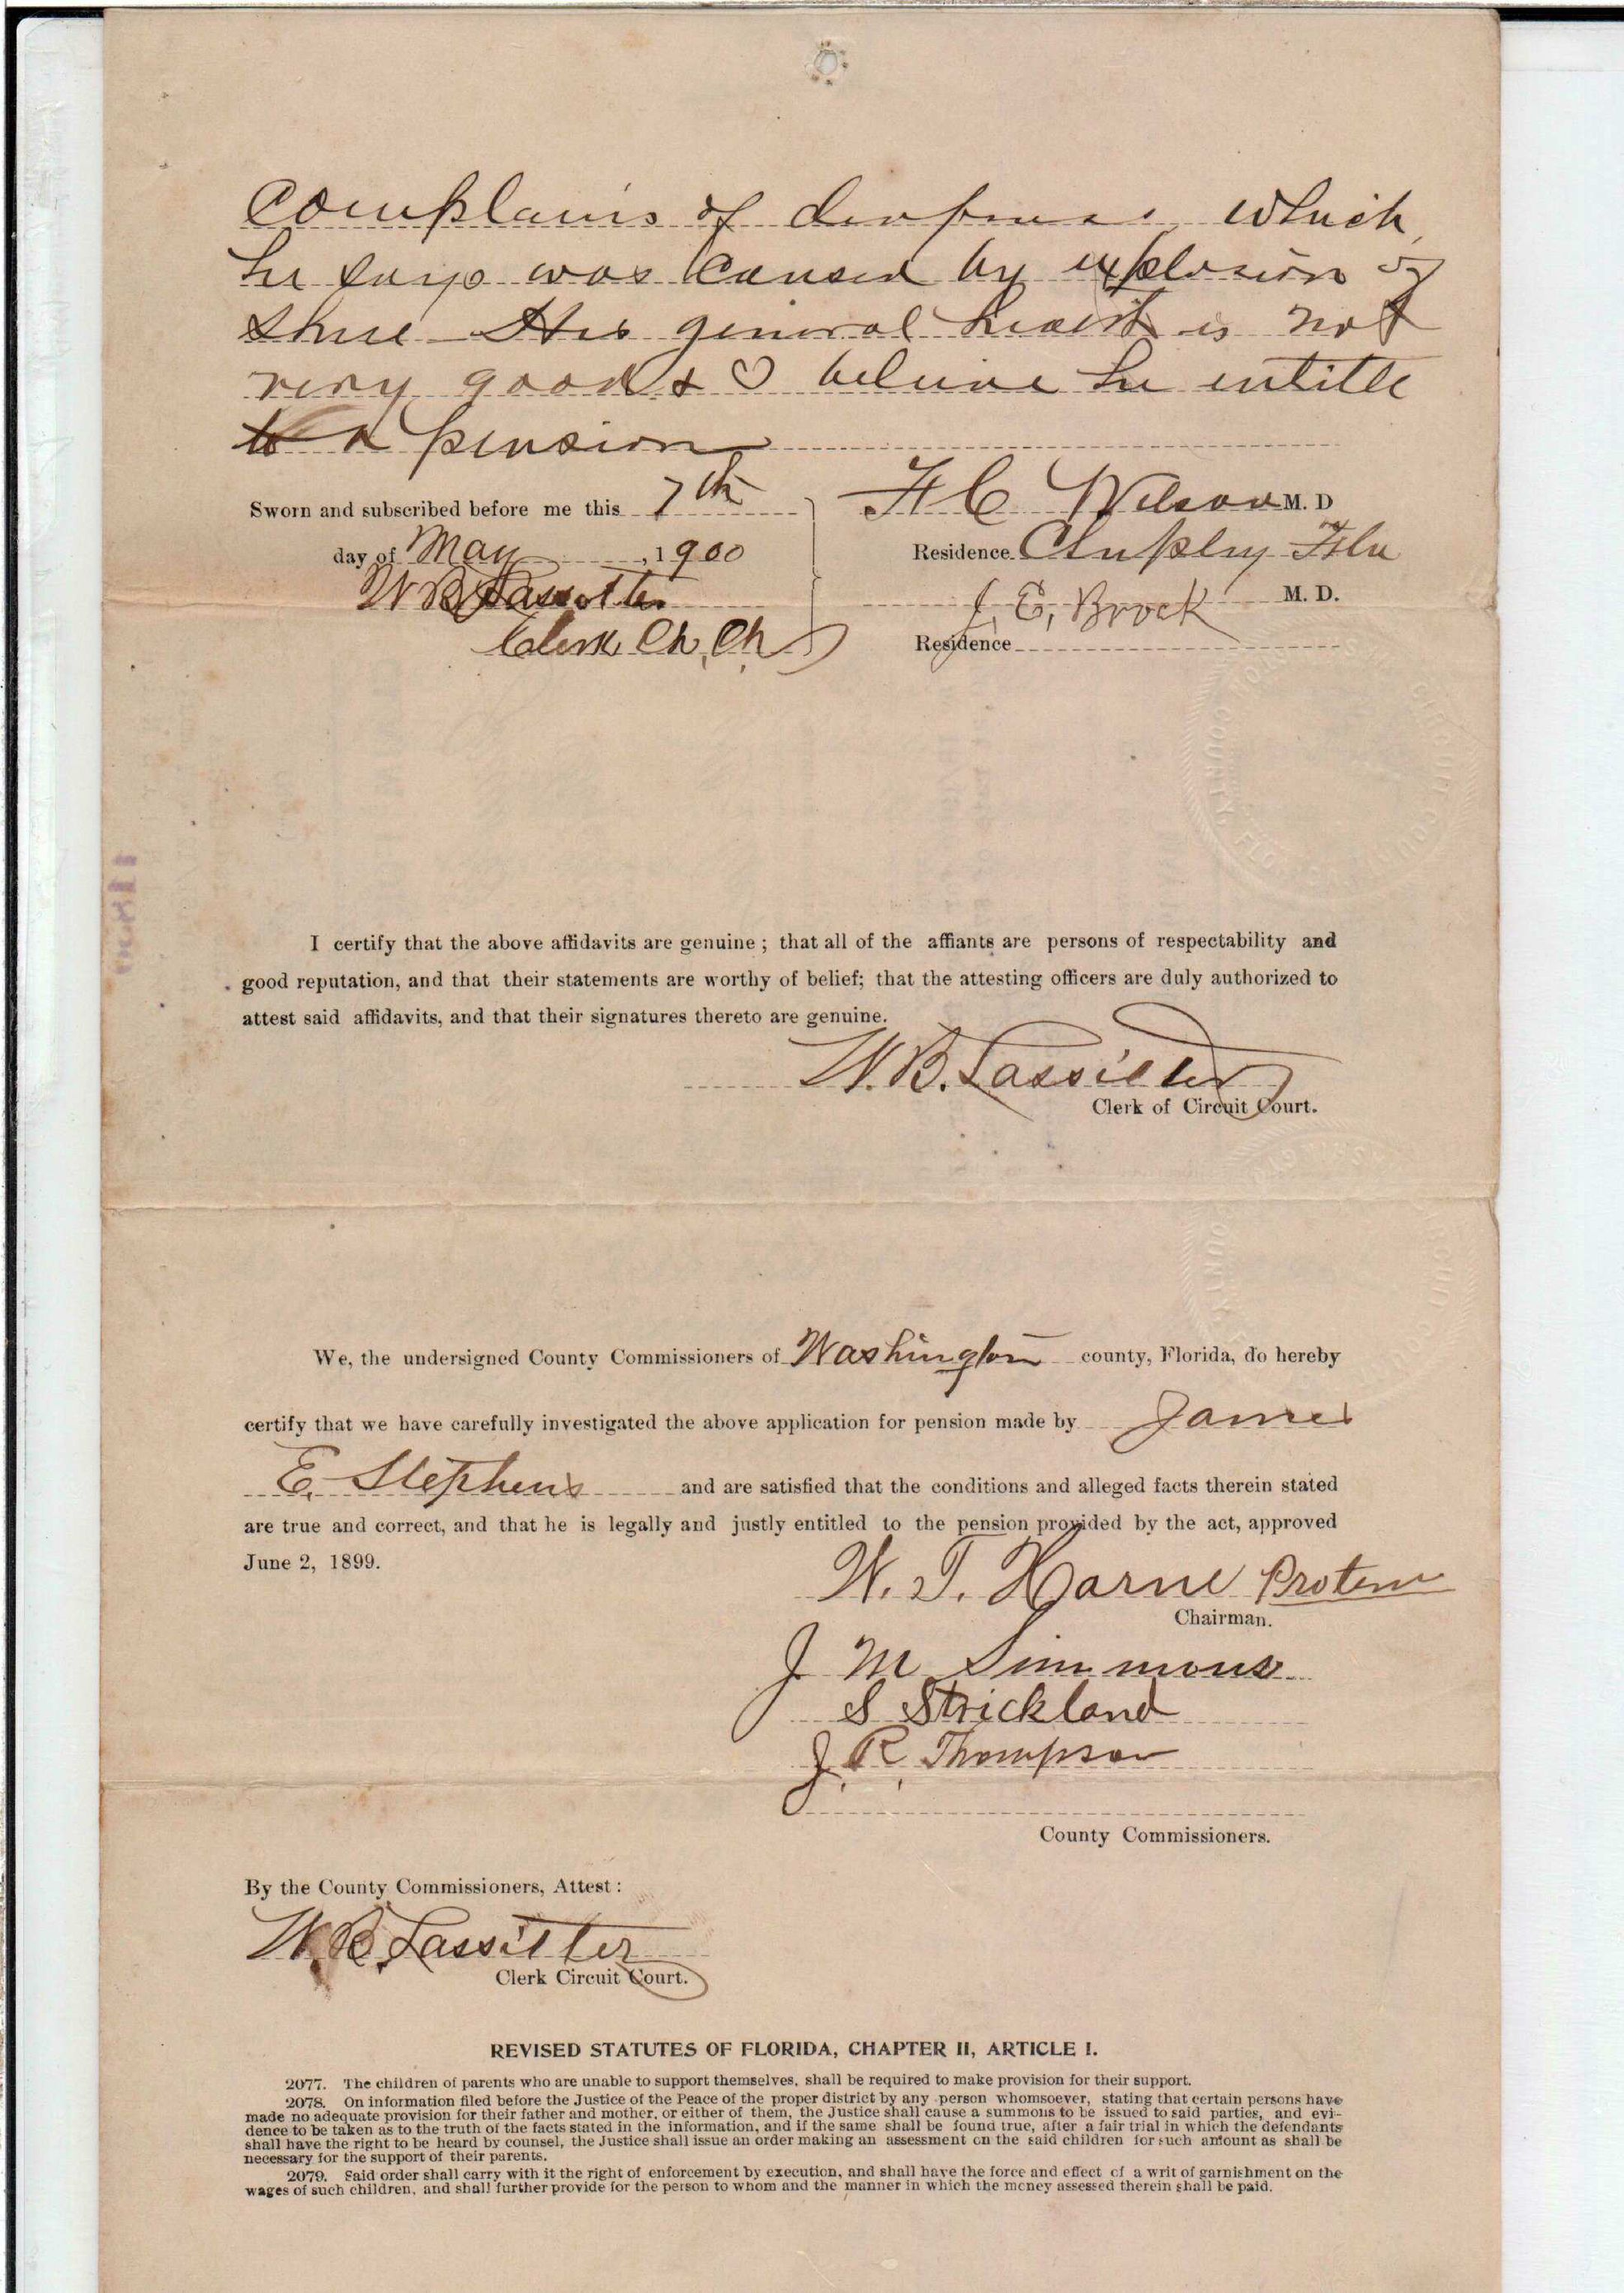 Complains of deafness which
he says was caused by explosion of
shell - His general health is not
very good & I believe he entitle
to a pension
Sworn and subscribed before me this 7th
day of May, 1900
W B Lassitter
Clerk Ch, Ch
H C Wilson M. D
Residence Chipley Fla
J. E, Brock M. D.
Residence
I certify that the above affidavits are genuine; that all of the affiants are persons of respectability and
good reputation, and that their statements are worthy of belief; that the attesting officers are duly authorized to
attest said affidavits, and that their signatures thereto are genuine.
W. B. Lassitter
Clerk of Circuit Court.
We, the undersigned County Commissioners of Washington county, Florida, do hereby
certify that we have carefully investigated the above application for pension made by James
E. Stephens and are satisfied that the conditions and alleged facts therein stated
are true and correct, and that he is legally and justly entitled to the pension provided by the act, approved
June 2, 1899.
W. T. Horne Protem
Chairman.
J M Simmons
S Strickland
J. R. Thompson
County Commissioners.
By the County Commissioners, Attest:
W. B. Lassitter
Clerk Circuit Court.
REVISED STATUTES OF FLORIDA, CHAPTER II, ARTICLE I.
2077. The children of parents who are unable to support themselves, shall be required to make provision for their support.
2078. On information filed before the Justice of the Peace of the proper district by any person whomsoever, stating that certain persons have
made no adequate provision for their father and mother, or either of them, the Justice shall cause a summons to be issued to said parties, and evi-
dence to be taken as to the truth of the facts stated in the information, and if the same shall be found true, after a fair trial in which the defendants
shall have the right to be heard by counsel, the Justice shall issue an order making an assessment on the said children for such amount as shall be
necessary for the support of their parents.
2079. Said order shall carry with it the right of enforcement by execution, and shall have the force and effect of a writ of garnishment on the
wages of such children, and shall further provide for the person to whom and the manner in which the money assessed therein shall be paid.